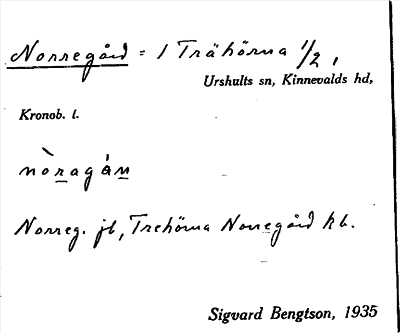 Norregård = 1 Trähörna 1/2,
Urshults sn, Kinnevalds hd,
Kronob. l.
nòragán
Norreg. jb, Trehörna Norregård kb.
Sigvard Bengtson, 1935